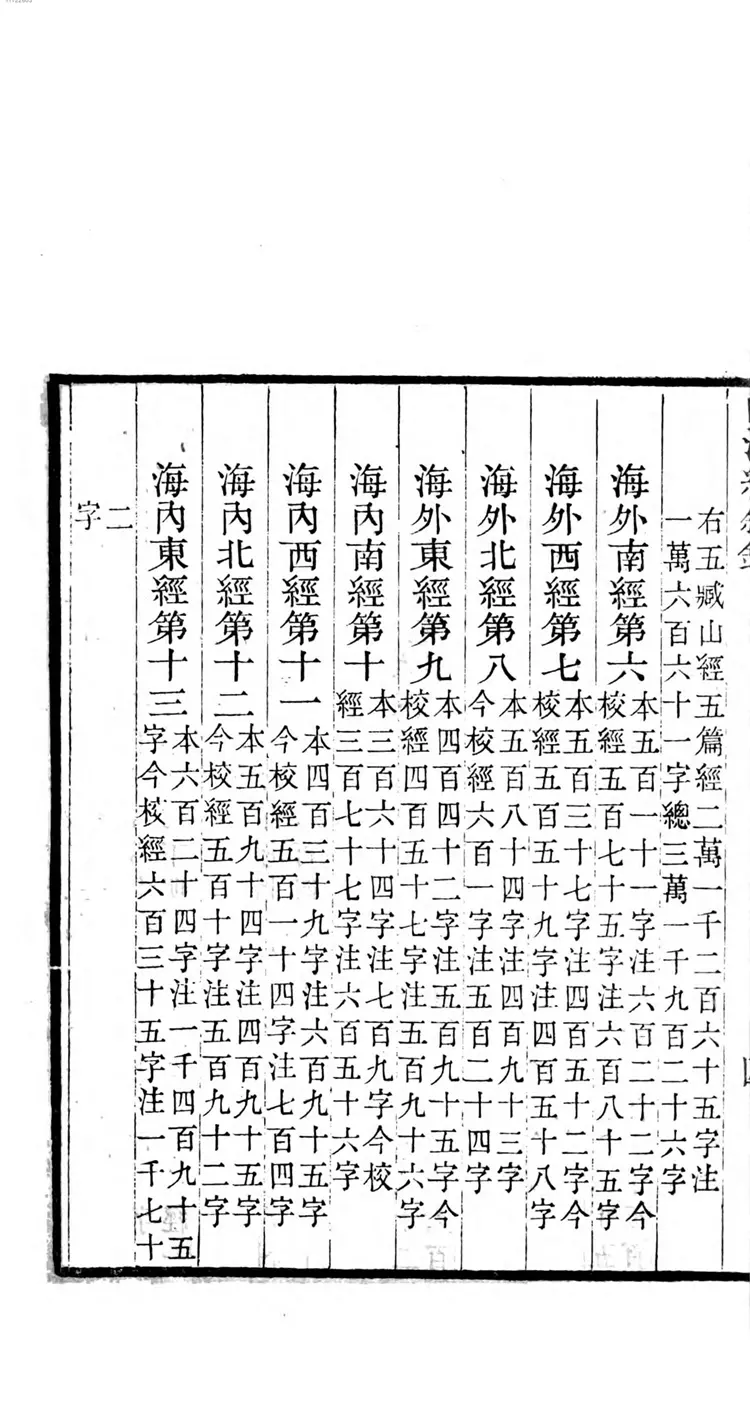 右五臧山經五篇經二萬一千二百六十五字注
一萬六百六十一字總三萬一千九百二十六字
海外南經第六
本五百一十一字注六百二十二字今
校經五百七十五字注六百八十五字
海外西經第七
本五百三十七字注四百五十二字今
校經五百五十九字注四百五十八字
海外北經第八
本五百八十四字注四百九十三字
今校經六百一字注五百二十四字
海外東經第九
本四百四十二字注五百九十五字今
校經四百五十七字注五百九十六字
海內南經第十
本三百六十四字注七百九字今校
經三百七十七字注六百五十六字
海內西經第十一
本四百三十九字注六百九十五字
今校經五百一十四字注七百四字
海內北經第十二
本五百九十四字注四百九十五字
今校經五百十字注五百九十二字
海內東經第十三
本六百二十四字注一千四百九十五
字今校經六百三十五字注一千七十
二
字